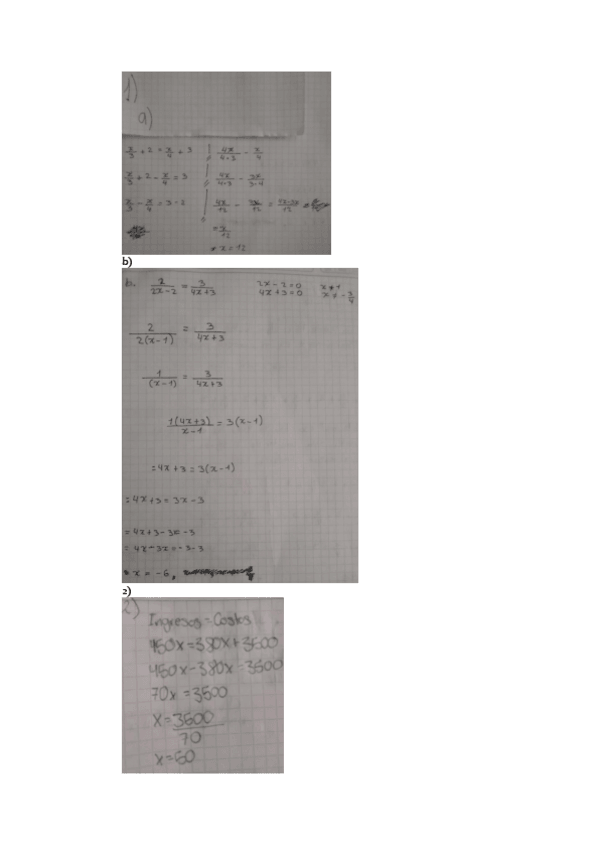 1)
a)
x/3 + 2 = x/4 + 3
x/3 + 2 - x/4 = 3
x/3 - x/4 = 3 - 2
4x/4·3 - x/4
4x/4·3 - 3x/3·4
4x/12 - 3x/12 = 4x-3x/12
= x/12
x = 12
b)
b. 2/2x-2 = 3/4x+3
2x-2=0 x≠1
4x+3=0 x≠-3/4
2/2(x-1) = 3/4x+3
1/(x-1) = 3/4x+3
1(4x+3)/x-1 = 3(x-1)
=4x+3=3(x-1)
=4x+3=3x-3
=4x+3-3x=-3
=4x-3x=-3-3
x = -6,
2)
2)
Ingresos = Costos
450x=380x+3600
450x-380x=3600
70x=3600
x=3600/70
x=60